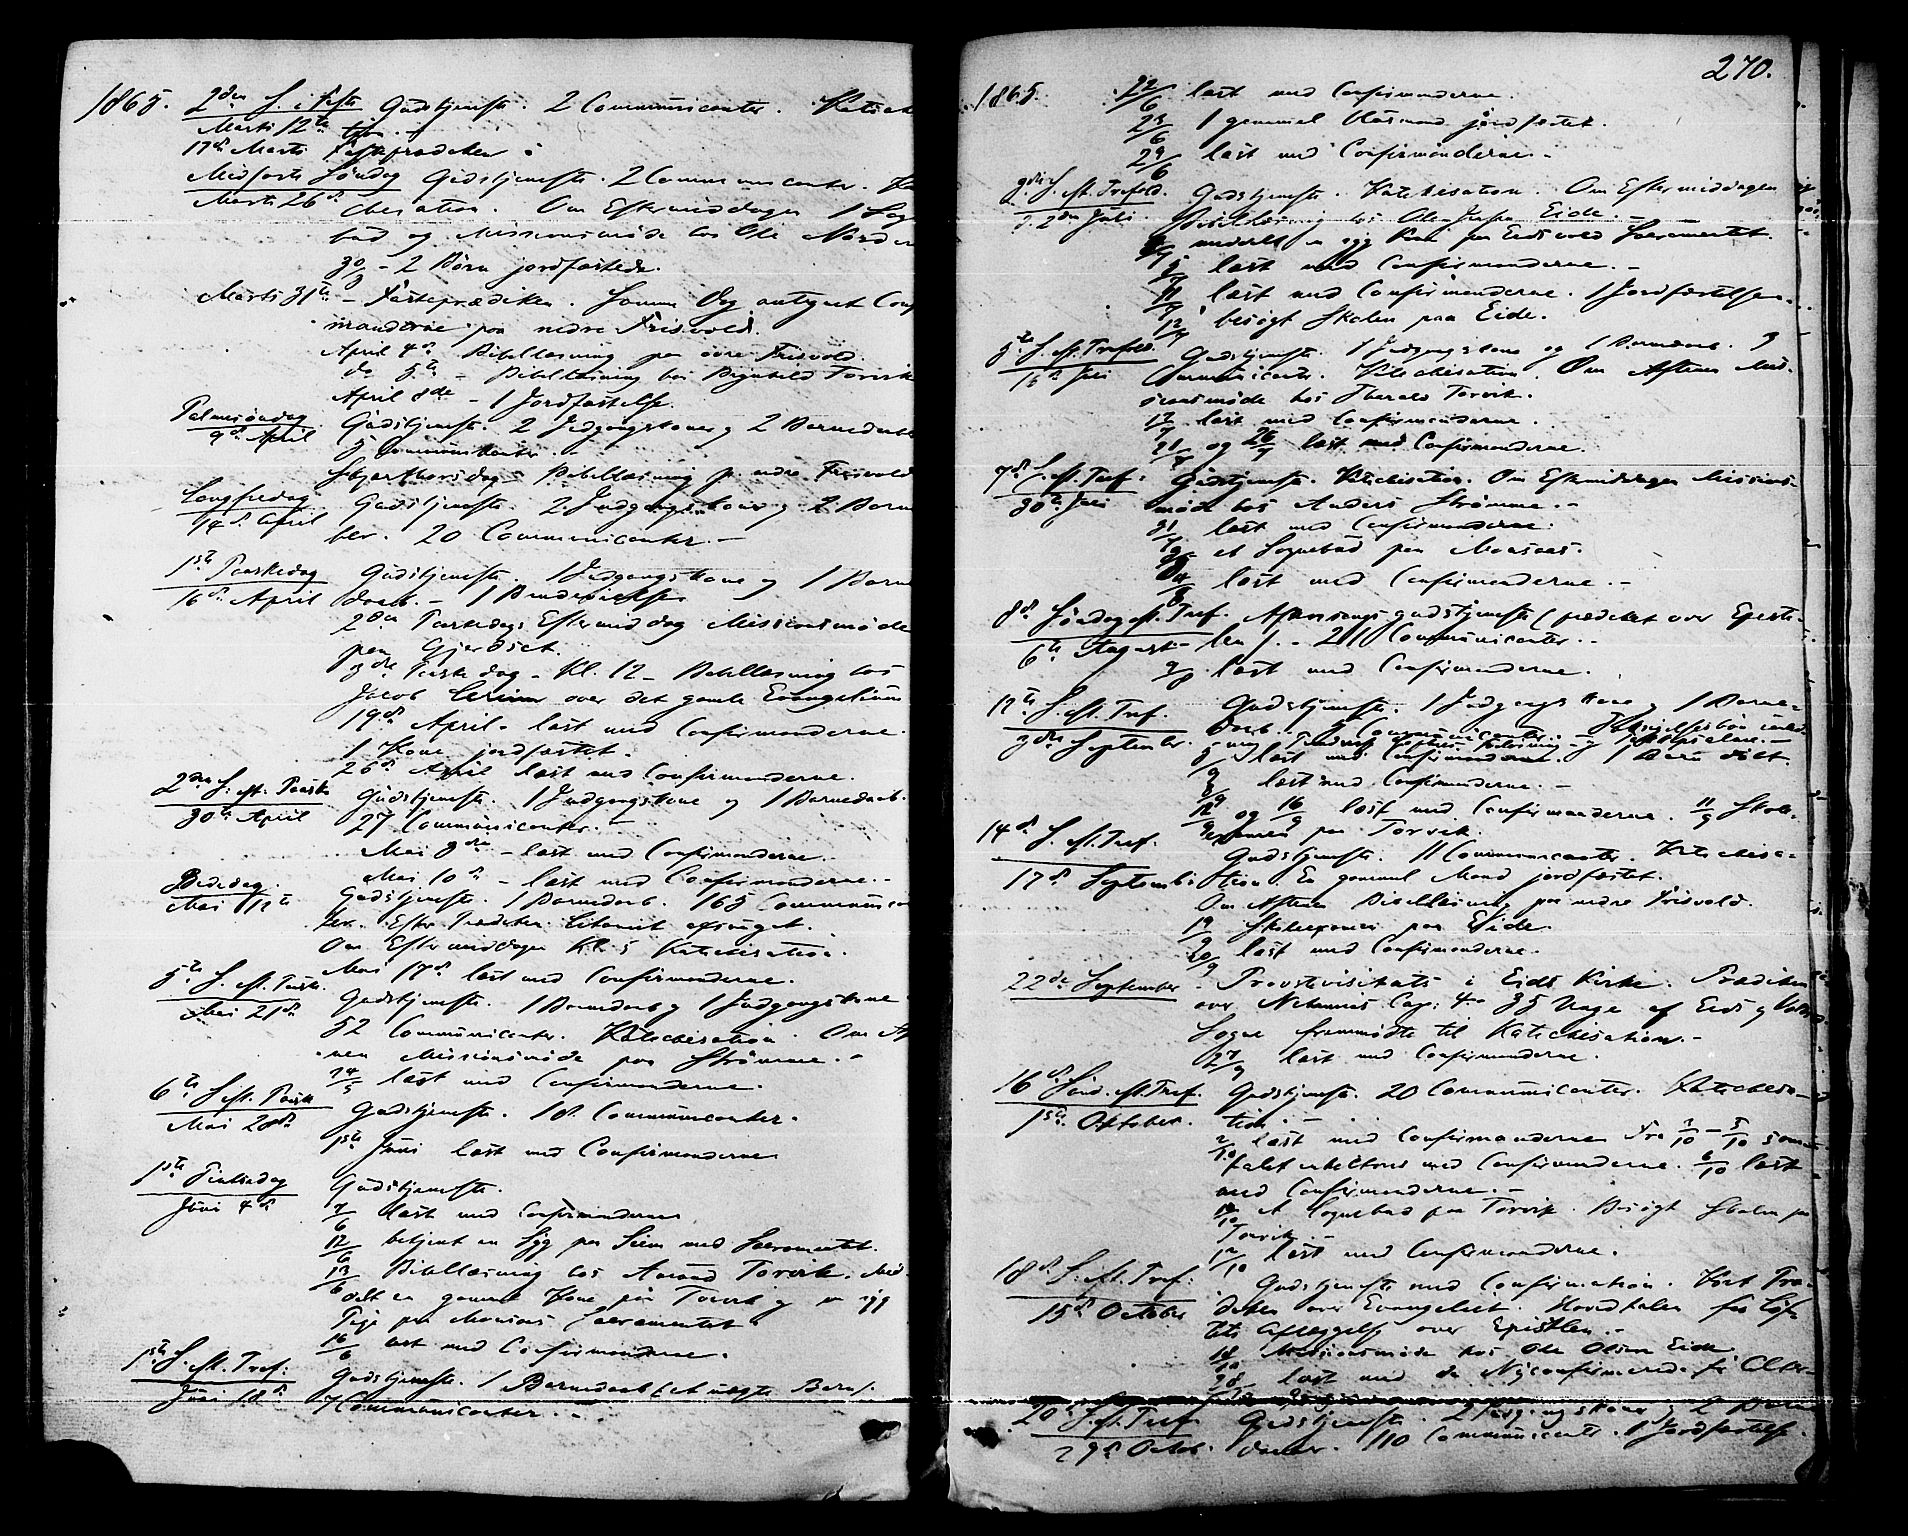 1865. 2den S. i Faste Gudstjeneste. 2 Communicanter. Katiche
Marts 12te tion.
17de Marts Fasteprædiken.
Midfaste Søndag Gudstjeneste. 2 Communicanter. Ka
Marts 26de chesation. Om Eftermiddagen 1 Sog
bud og Missionsmøde hos Ole
30/3 - 2 Børn jordfæstede.
Marts 31te - Fasteprædiken. Samme Dag antegnet Conf
manderne paa nedre Frisvold.
April 4de Bibellæsning paa øvre Frisvold.
do 5te - Bibellæsning hos Torvik
April 8de - 1 Jordfæstelse.
Palmesøndag Gudstjeneste. 2 Indgangskoner og 2 Barnedaab
9de April 5 Communicanter.
Skjærthorsdag - Bibellæsning p. nedre Frisvold
Langfredag Gudstjeneste. 2 Indgangskoner og 2 Barne
14de April ber. 20 Communicanter. -
1ste Paaskedag Gudstjeneste. 1 Indgangskone og 1 Barne
16de April daab. - 1
2den Paaskedags Eftermiddag Missionsmøde
paa Gjerdset.
3die Paaskedag - Kl. 12 - Bibellæsning hos
Jacob over det gamle Evangelium
19de April - læst med Confirmanderne.
1 Kone jordfæstet.
26de April læst med Confirmanderne.
2den S. eft. Paaske Gudstjeneste. 1 Indgangskone og 1 Barnedaab.
30te April 27 Communicanter. -
Mai 3die - læst med Confirmanderne.
Mai 10de - læst med Confirmanderne. -
Bededag. Gudstjeneste. 1 Barnedaab. 165 Communican
Mai 12te ter. Efter Prædiken Litaniet afsunget.
Om Eftermiddagen Kl. 5 Katichisation.
Mai 17de læst med Confirmanderne.
5te S. eft. Paaske Gudstjeneste. 1 Barnedaab og 1 Indgangskone.
Mai 21de 52 Communicanter. Katechisation. Om Af
nen Missionsmøde paa Strømme. -
24/5 læst med Confirmanderne.
6te S. eft. Paask Gudstjeneste. 18 Communicanter.
Mai 28de
1ste Juni læst med Confirmanderne
1ste Pintsedag Gudstjeneste.
Juni 4de 7/6 læst med Confirmanderne
12/6 betjent en Syg paa Siem med Sacramentet.
13/6 Bibellæsning hos Amund Torvik. Med-
delt en gammel Kone paa Torvik og en syg
Pige paa Monsaas Sacramentet
16/6 læst med Confirmanderne.
1ste S. eft. Tref. Gudstjeneste. 1 Barnedaab (et uægte Barn).
Juni 18de 7 Communicanter. -
270.
1865. 22/6 læst med Confirmanderne.
23/6 1 gammel jordfæstet.
29/6 læst med Confirmanderne. -
3die S. eft. Trefold. Gudstjeneste. Katechisation. Om Eftermiddagen
d. 2den Juli Bibellæsning hos Ole Eide. -
meddelt en syg paa Eidsvold Sacramentet.
5/7 læst med Confirmanderne. -
11/7 læst med Confirmanderne. 1 Jordfæstelse.
12/7 besøgt Skolen paa Eide.
5te S. eft. Trefold. Gudstjeneste. 1 Indgangskone og 1 Barnedaab. 3
16de Juli Communicanter. Katechisation. Om Aftenen Mis-
sionsmøde hos Torvik.
17/7 læst med Confirmanderne.
21/7 og 26/7 læst med Confirmanderne.
7de S. eft. Tref. Gudstjeneste. Katechisation. Om Eftermiddagen Missions-
30te Juli møde hos Anders Strømme. -
31/7 læst med Confirmanderne.
et Sognebud paa Monsaas.
4/8 læst med Confirmanderne. -
8de Søndag eft. Tref. Aftensangsgudstjeneste (prædiket over Episte-
6te August - len). - 211 Communicanter. -
9/8 læst med Confirmanderne.
12te S. eft. Tref. Gudstjeneste. 1 Indgangskone og 1 Barne-
3die September. daab. 5 Communicanter.
læst med Confirmanderne. 1 Barn døbt.
8/9 læst med Confirmanderne. -
12/9 og 16/9 læst med Confirmanderne. 11/9 Skole-
examen paa Torvik.
14de S. eft. Tref. Gudstjeneste. 11 Communicanter. Katechisa-
17de September tion. En gammel Mand jordfæstet.
Om Aftenen Bibellæsning paa nedre Frisvold.
19/9 Skoleexamen paa Eide.
20/9 læst med Confirmanderne.
22de September - Provstevisitats i Eids Kirke. Prædiken
over Nehemias Cap: 4. - 35 Unge af Eids og
Sogne fremmødte til Katechisation. -
27/9 læst med Confirmanderne.
16de Sønd. eft. Tref. Gudstjeneste. 20 Communicanter. Katechesa-
1ste Oktober. tion. -
2/10 læst med Confirmanderne Fra 3/10 - 5/10
med Confirmanderne. 6/10 læst
med Confirmanderne. -
10/10 et Sognebud paa Torvik. Besøgt Skolen paa
Torvik. -
12/10 læst med Confirmanderne.
18de S. eft. Tref. Gudstjeneste med Confirmation. Kort Præ-
15de October diken over Evangeliet. Hovedtalen før Løf-
tets Aflæggelse over Epistlen. -
18/10 Missionsmøde hos Ole Olsen Eide
28/10 læst med de Nyconfirmerede før Alter-
20de S. eft. Tref. Gudstjeneste. 2 Indgangskoner og 2 Barne
29de Octob. daaber. 110 Communicanter. 1 Jordfæstelse.